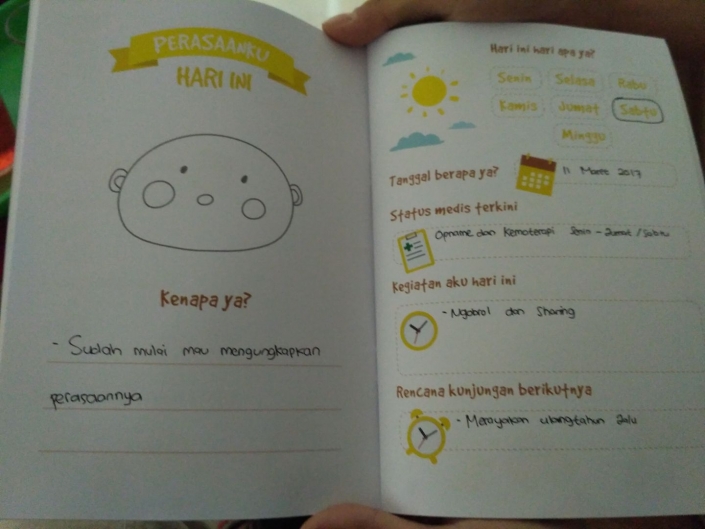 PERASAANKU
HARI INI
Kenapa ya?
- Sudah mulai mau mengungkapkan
perasaannya
Hari ini hari apa ya?
Senin Selasa Rabu
Kamis Jumat Sabtu
Minggu
Tanggal berapa ya? 11 Maret 2017
Status medis terkini
Opname dan Kemoterapi Senin - Jumat / Sabtu
Kegiatan aku hari ini
- Ngobrol dan Sharing
Rencana kunjungan berikutnya
- Merayakan ulangtahun